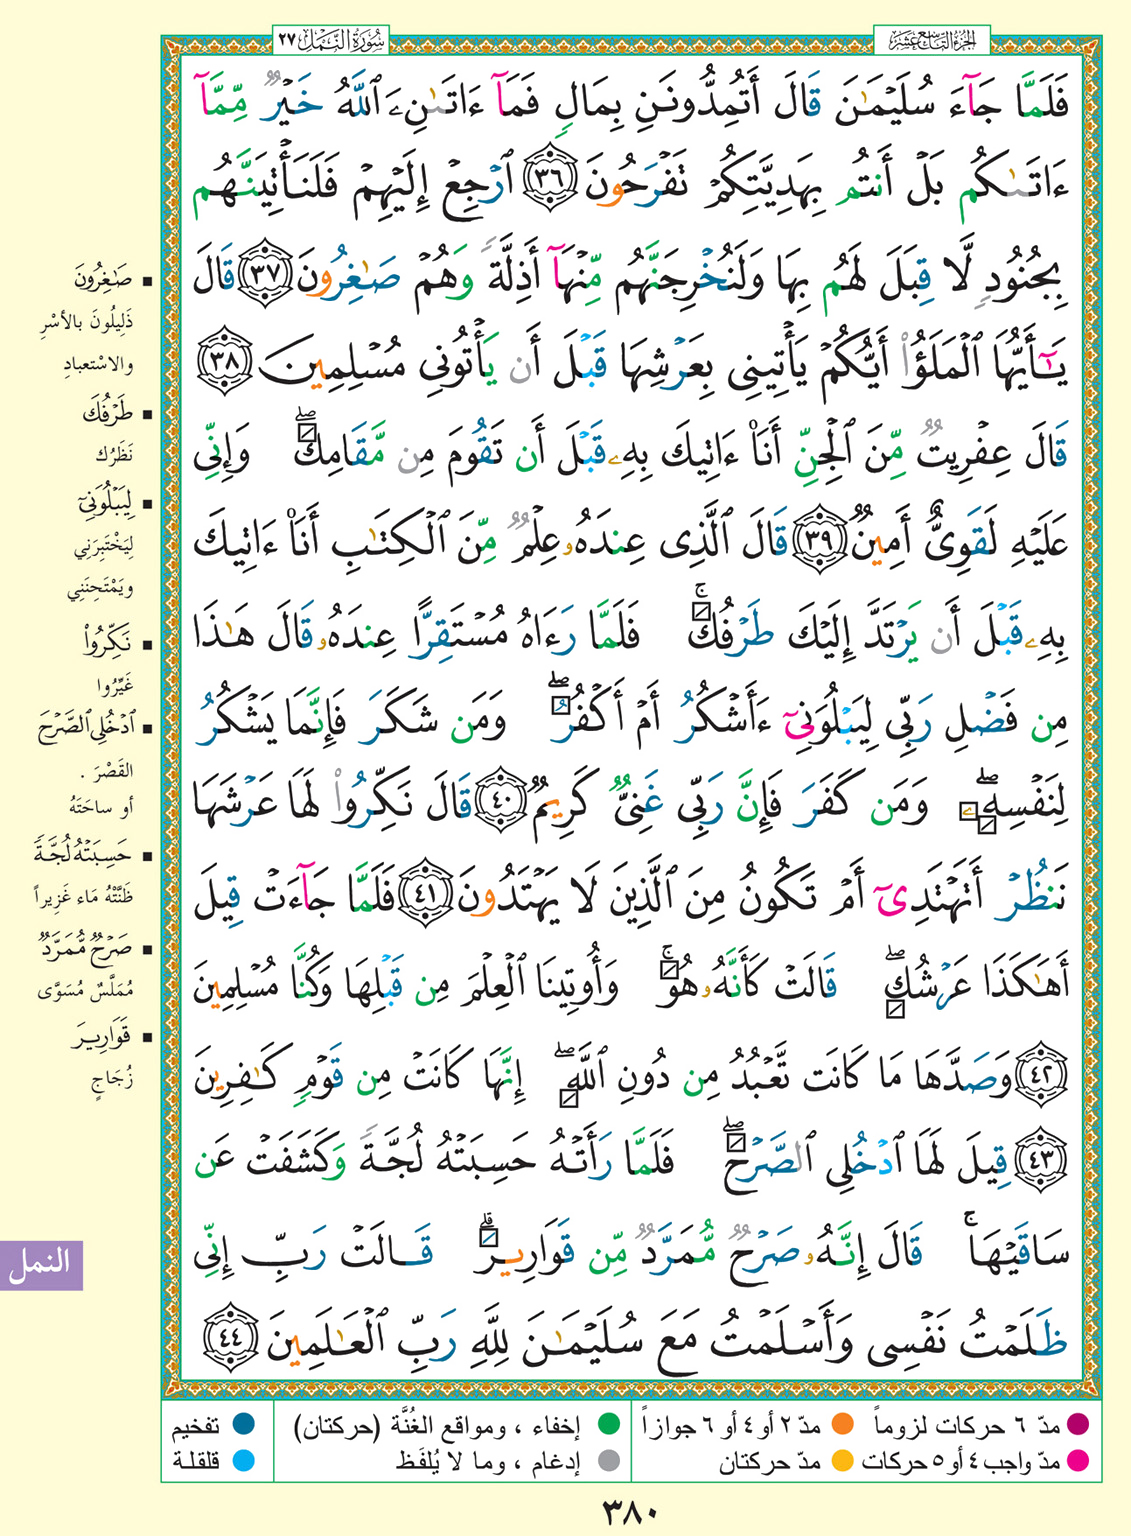 سُورَةُ النَّمْلِ ٢٧
الجُزءُ التَّاسِعُ عَشَرَ
فَلَمَّا جَآءَ سُلَيْمَٰنَ قَالَ أَتُمِدُّونَنِ بِمَالٍ فَمَآ ءَاتَىٰنِۦَ ٱللَّهُ خَيْرٌ مِّمَّآ
ءَاتَىٰكُم بَلْ أَنتُم بِهَدِيَّتِكُمْ تَفْرَحُونَ ٣٦ ٱرْجِعْ إِلَيْهِمْ فَلَنَأْتِيَنَّهُم
بِجُنُودٍ لَّا قِبَلَ لَهُم بِهَا وَلَنُخْرِجَنَّهُم مِّنْهَآ أَذِلَّةً وَهُمْ صَٰغِرُونَ ٣٧ قَالَ
يَٰٓأَيُّهَا ٱلْمَلَؤُا۟ أَيُّكُمْ يَأْتِينِى بِعَرْشِهَا قَبْلَ أَن يَأْتُونِى مُسْلِمِينَ ٣٨
قَالَ عِفْرِيتٌ مِّنَ ٱلْجِنِّ أَنَا۠ ءَاتِيكَ بِهِۦ قَبْلَ أَن تَقُومَ مِن مَّقَامِكَ ۖ وَإِنِّى
عَلَيْهِ لَقَوِىٌّ أَمِينٌ ٣٩ قَالَ ٱلَّذِى عِندَهُۥ عِلْمٌ مِّنَ ٱلْكِتَٰبِ أَنَا۠ ءَاتِيكَ
بِهِۦ قَبْلَ أَن يَرْتَدَّ إِلَيْكَ طَرْفُكَ ۚ فَلَمَّا رَءَاهُ مُسْتَقِرًّا عِندَهُۥ قَالَ هَٰذَا
مِن فَضْلِ رَبِّى لِيَبْلُوَنِىٓ ءَأَشْكُرُ أَمْ أَكْفُرُ ۖ وَمَن شَكَرَ فَإِنَّمَا يَشْكُرُ
لِنَفْسِهِۦ ۖ وَمَن كَفَرَ فَإِنَّ رَبِّى غَنِىٌّ كَرِيمٌ ٤٠ قَالَ نَكِّرُوا۟ لَهَا عَرْشَهَا
نَنظُرْ أَتَهْتَدِىٓ أَمْ تَكُونُ مِنَ ٱلَّذِينَ لَا يَهْتَدُونَ ٤١ فَلَمَّا جَآءَتْ قِيلَ
أَهَٰكَذَا عَرْشُكِ ۖ قَالَتْ كَأَنَّهُۥ هُوَ ۚ وَأُوتِينَا ٱلْعِلْمَ مِن قَبْلِهَا وَكُنَّا مُسْلِمِينَ
٤٢ وَصَدَّهَا مَا كَانَت تَّعْبُدُ مِن دُونِ ٱللَّهِ ۖ إِنَّهَا كَانَتْ مِن قَوْمٍ كَٰفِرِينَ
٤٣ قِيلَ لَهَا ٱدْخُلِى ٱلصَّرْحَ ۖ فَلَمَّا رَأَتْهُ حَسِبَتْهُ لُجَّةً وَكَشَفَتْ عَن
سَاقَيْهَا ۚ قَالَ إِنَّهُۥ صَرْحٌ مُّمَرَّدٌ مِّن قَوَارِيرَ ۗ قَالَتْ رَبِّ إِنِّى
ظَلَمْتُ نَفْسِى وَأَسْلَمْتُ مَعَ سُلَيْمَٰنَ لِلَّهِ رَبِّ ٱلْعَٰلَمِينَ ٤٤
صَٰغِرُونَ
ذَلِيلُونَ بالأسْرِ
والاسْتعبادِ
طَرْفُكَ
نَظَرُك
لِيَبْلُوَنِىٓ
لِيَخْتَبِرَنِي
ويَمْتَحِنَنِي
نَكِّرُوا۟
غَيِّرُوا
ٱدْخُلِى ٱلصَّرْحَ
القَصْرَ .
أو ساحَتَهُ
حَسِبَتْهُ لُجَّةً
ظَنَّتْهُ مَاء غَزِيراً
صَرْحٌ مُّمَرَّدٌ
مُمَلَّسٌ مُسَوًّى
قَوَارِيرَ
زُجَاجٍ
النمل
مدّ ٦ حركات لزوماً
مدّ ٢ أو ٤ أو ٦ جوازاً
إخفاء ، ومواقع الغُنَّة (حركتان)
تفخيم
مدّ واجب ٤ أو ٥ حركات
مدّ حركتان
إدغام ، وما لا يُلفَظ
قلقلة
٣٨٠